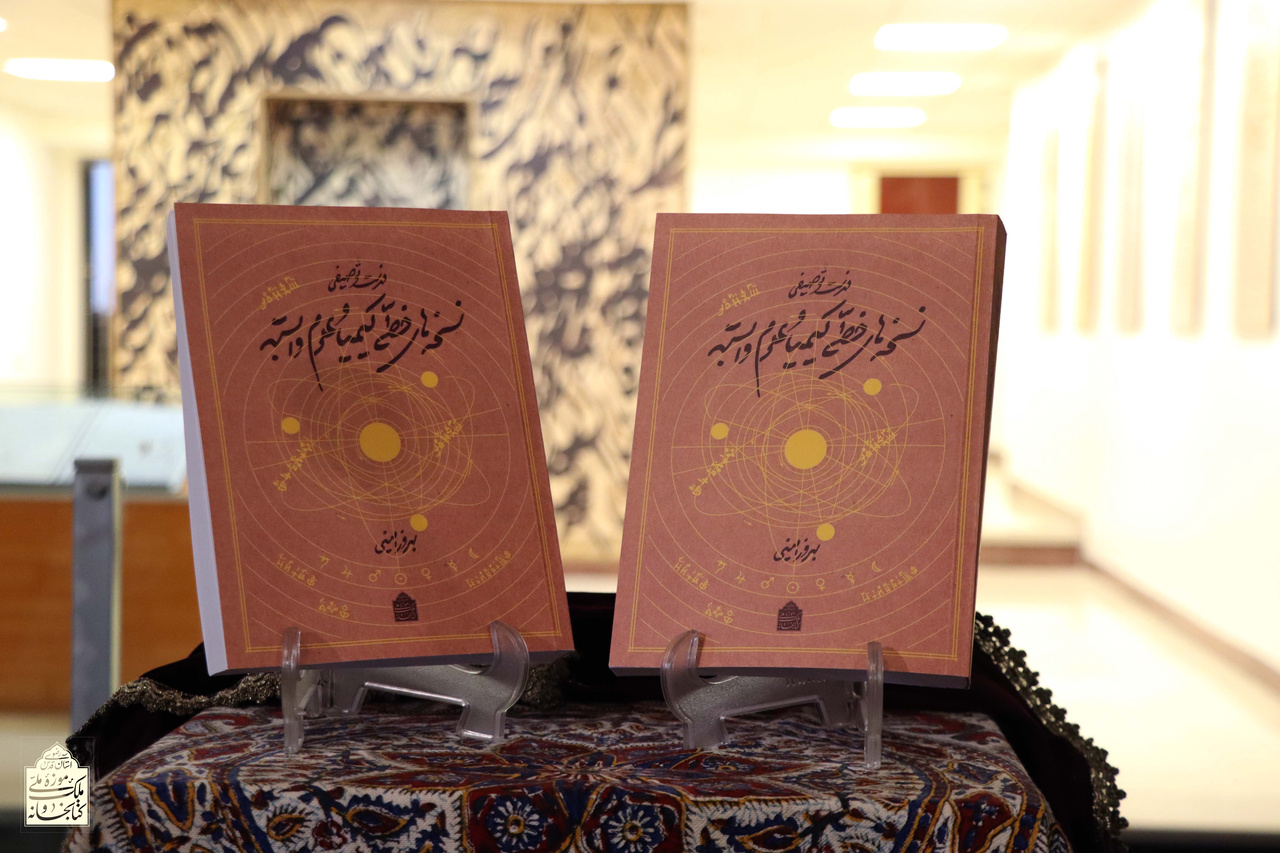 فهرست توصیفی
نسخه‌های خطی کیمیا و علوم وابسته
بهروز امینی
فهرست توصیفی
نسخه‌های خطی کیمیا و علوم وابسته
بهروز امینی
آستان قدس رضوی
کتابخانه و موزه ملی ملک